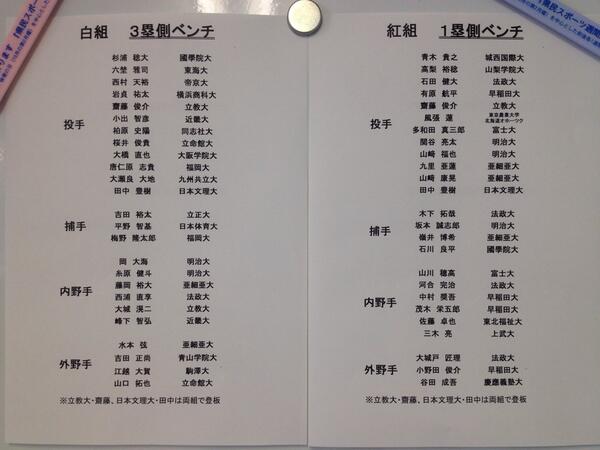 白組 3塁側ベンチ
投手
杉浦 稔大 國學院大
六埜 雅司 東海大
西村 天裕 帝京大
岩貞 祐太 横浜商科大
齋藤 俊介 立教大
小出 智彦 近畿大
柏原 史陽 同志社大
桜井 俊貴 立命館大
大橋 直也 大阪学院大
唐仁原 志貴 福岡大
大瀬良 大地 九州共立大
田中 豊樹 日本文理大
捕手
吉田 裕太 立正大
平野 智基 日本体育大
梅野 隆太郎 福岡大
内野手
岡 大海 明治大
糸原 健斗 明治大
藤岡 裕大 亜細亜大
西浦 直亨 法政大
大城 滉二 立教大
峰下 智弘 近畿大
外野手
水本 弦 亜細亜大
吉田 正尚 青山学院大
江越 大賀 駒澤大
山口 拓也 立命館大
※立教大・齋藤、日本文理大・田中は両組で登板
紅組 1塁側ベンチ
投手
青木 貴之 城西国際大
高梨 裕稔 山梨学院大
石田 健大 法政大
有原 航平 早稲田大
齋藤 俊介 立教大
風張 蓮 東京農業大学
北海道オホーツク
多和田 真三郎 富士大
関谷 亮太 明治大
山﨑 福也 明治大
九里 亜蓮 亜細亜大
山﨑 康晃 亜細亜大
田中 豊樹 日本文理大
捕手
木下 拓哉 法政大
坂本 誠志郎 明治大
嶺井 博希 亜細亜大
石川 良平 國學院大
内野手
山川 穂高 富士大
河合 完治 法政大
中村 奨吾 早稲田大
茂木 栄五郎 早稲田大
佐藤 卓也 東北福祉大
三木 亮 上武大
外野手
大城戸 匠理 法政大
小野田 俊介 早稲田大
谷田 成吾 慶應義塾大
※立教大・齋藤、日本文理大・田中は両組で登板